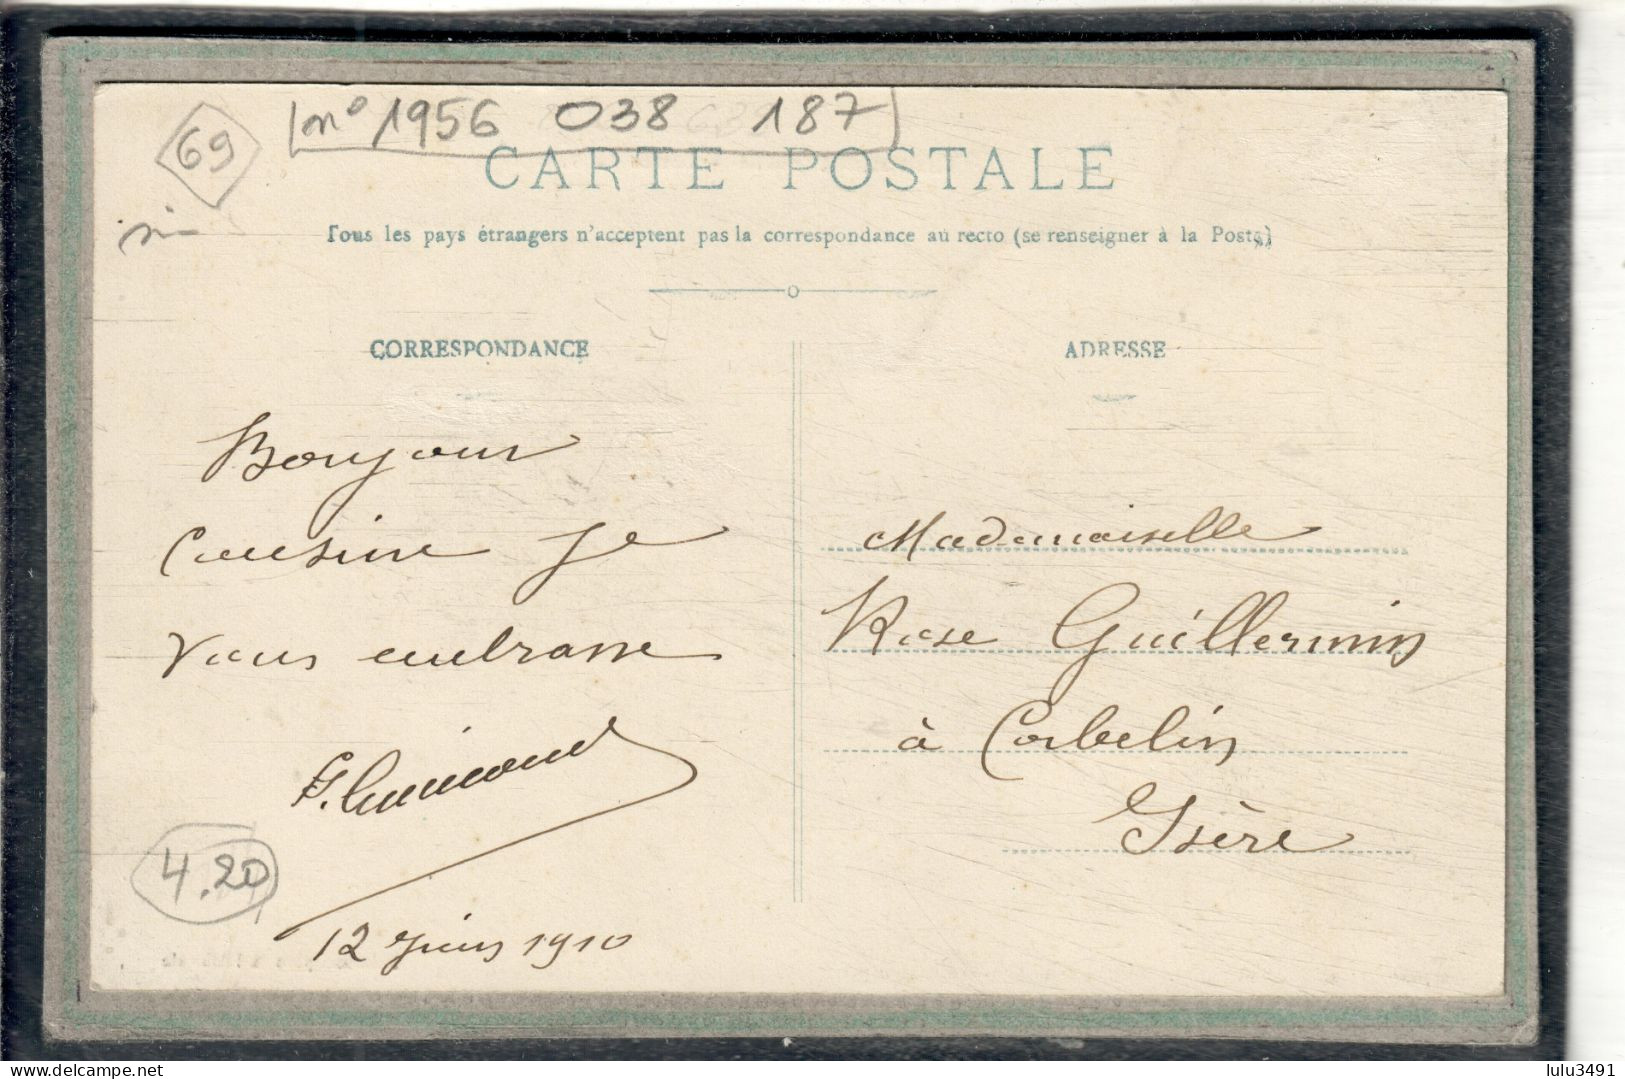 69
no 1956 038 187
CARTE POSTALE
Tous les pays étrangers n'acceptent pas la correspondance au recto (se renseigner à la Poste)
CORRESPONDANCE
Bonjour
Cousine Je
vous embrasse
12 Juin 1910
4.20
ADRESSE
Mademoiselle
Rose Guillermin
à Corbelin
Isère
delcampe.net
lulu3491